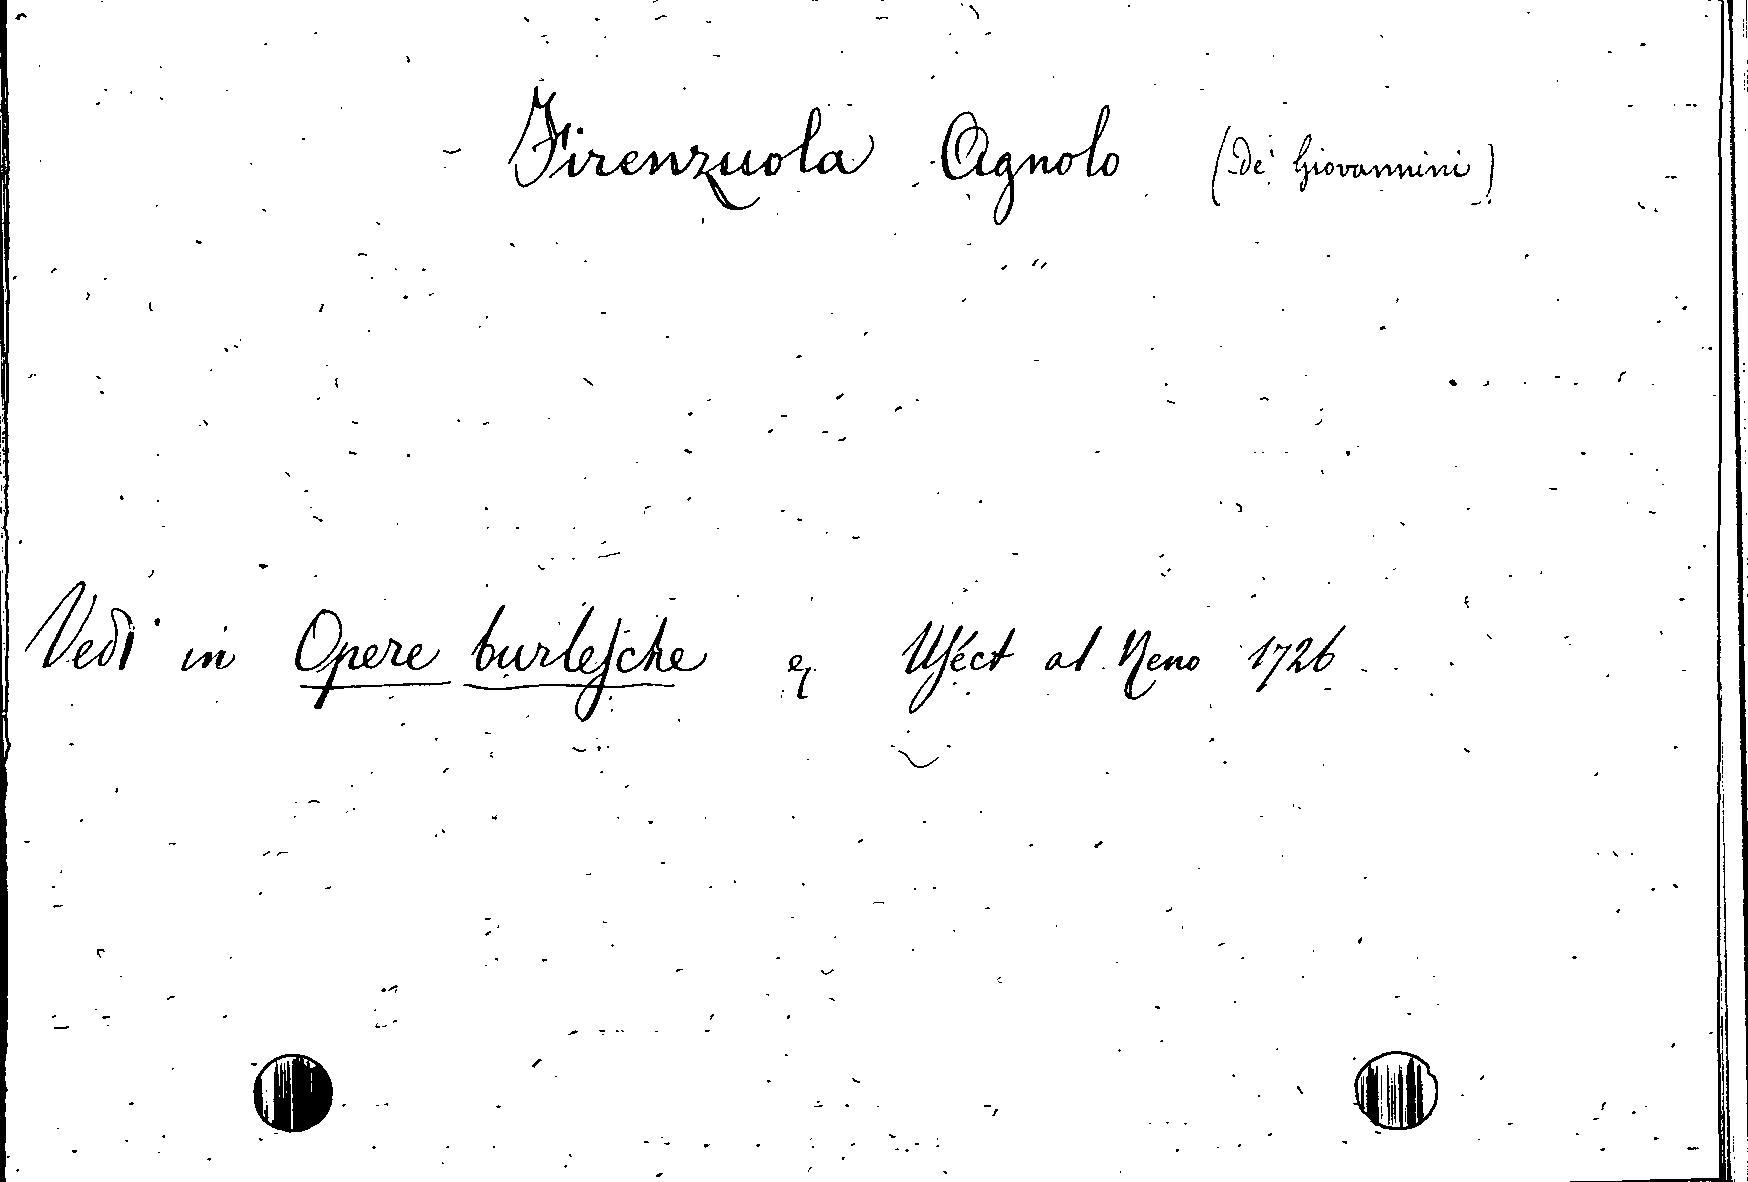 Firenzuola Agnolo (de' Giovannini)
Vedi in Opere burlesche ez Uséct al Reno 1726